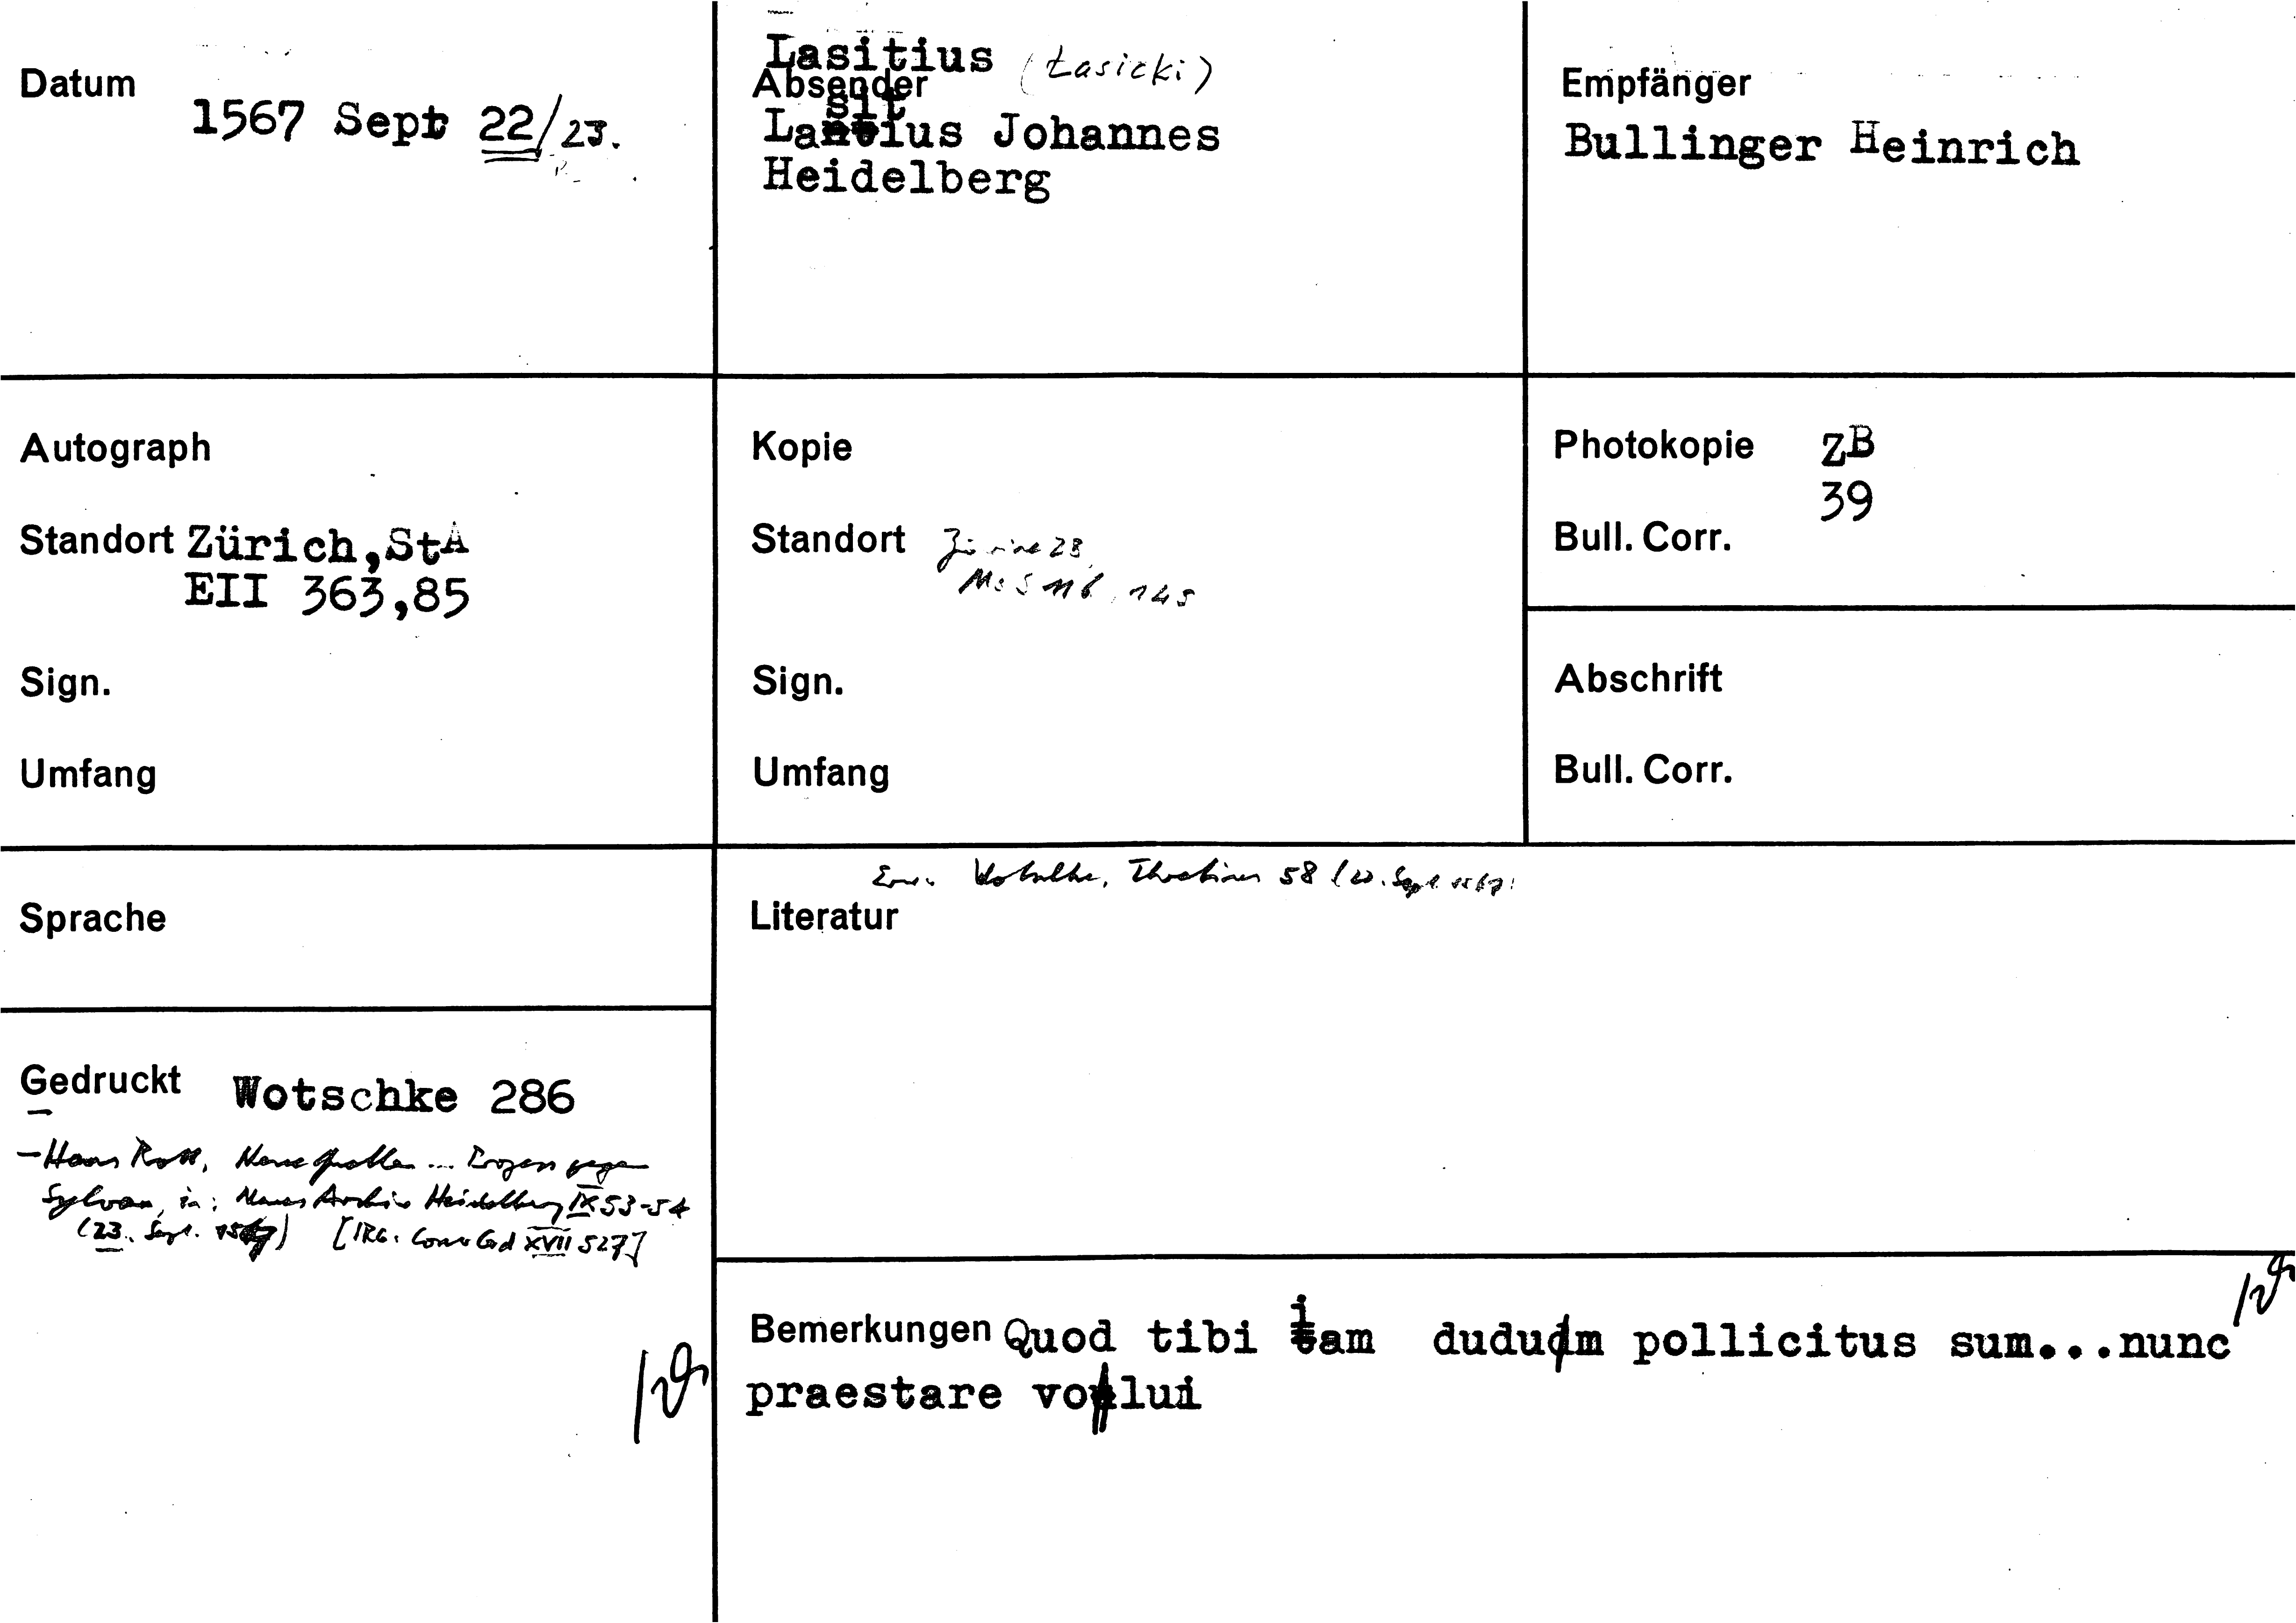 Datum
1567 Sept 22/23.
Lasitius (Łasicki)
Absender
sit
Lantius Johannes
Heidelberg
Empfänger
Bullinger Heinrich
Autograph
Standort Zürich,StA
EII 363,85
Sign.
Umfang
Kopie
Standort Zürich ZB
Ms S 116, 145
Sign.
Umfang
Photokopie ZB
39
Bull. Corr.
Abschrift
Bull. Corr.
Sprache
Erw. Wotschke, Thretius 58 (22. Sept 1567)
Literatur
Gedruckt Wotschke 286
- Hans Rott, Neue Quellen ... Prozess gegen
Sylvan, in: Neues Archiv Heidelberg IX 53-54
(23. Sept. 1567) XVII 527]
Bemerkungen Quod tibi iam dudum pollicitus sum...nunc
praestare volui